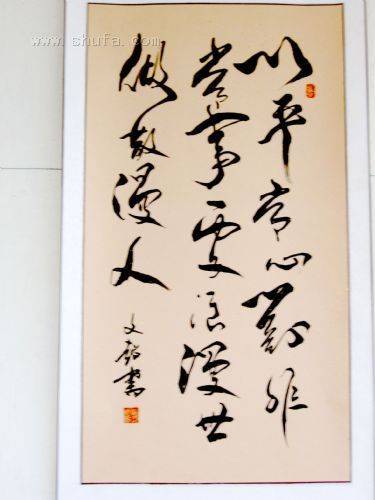 以平常心對非
常事處浪漫世
做散漫人
文書
www.shufa.com